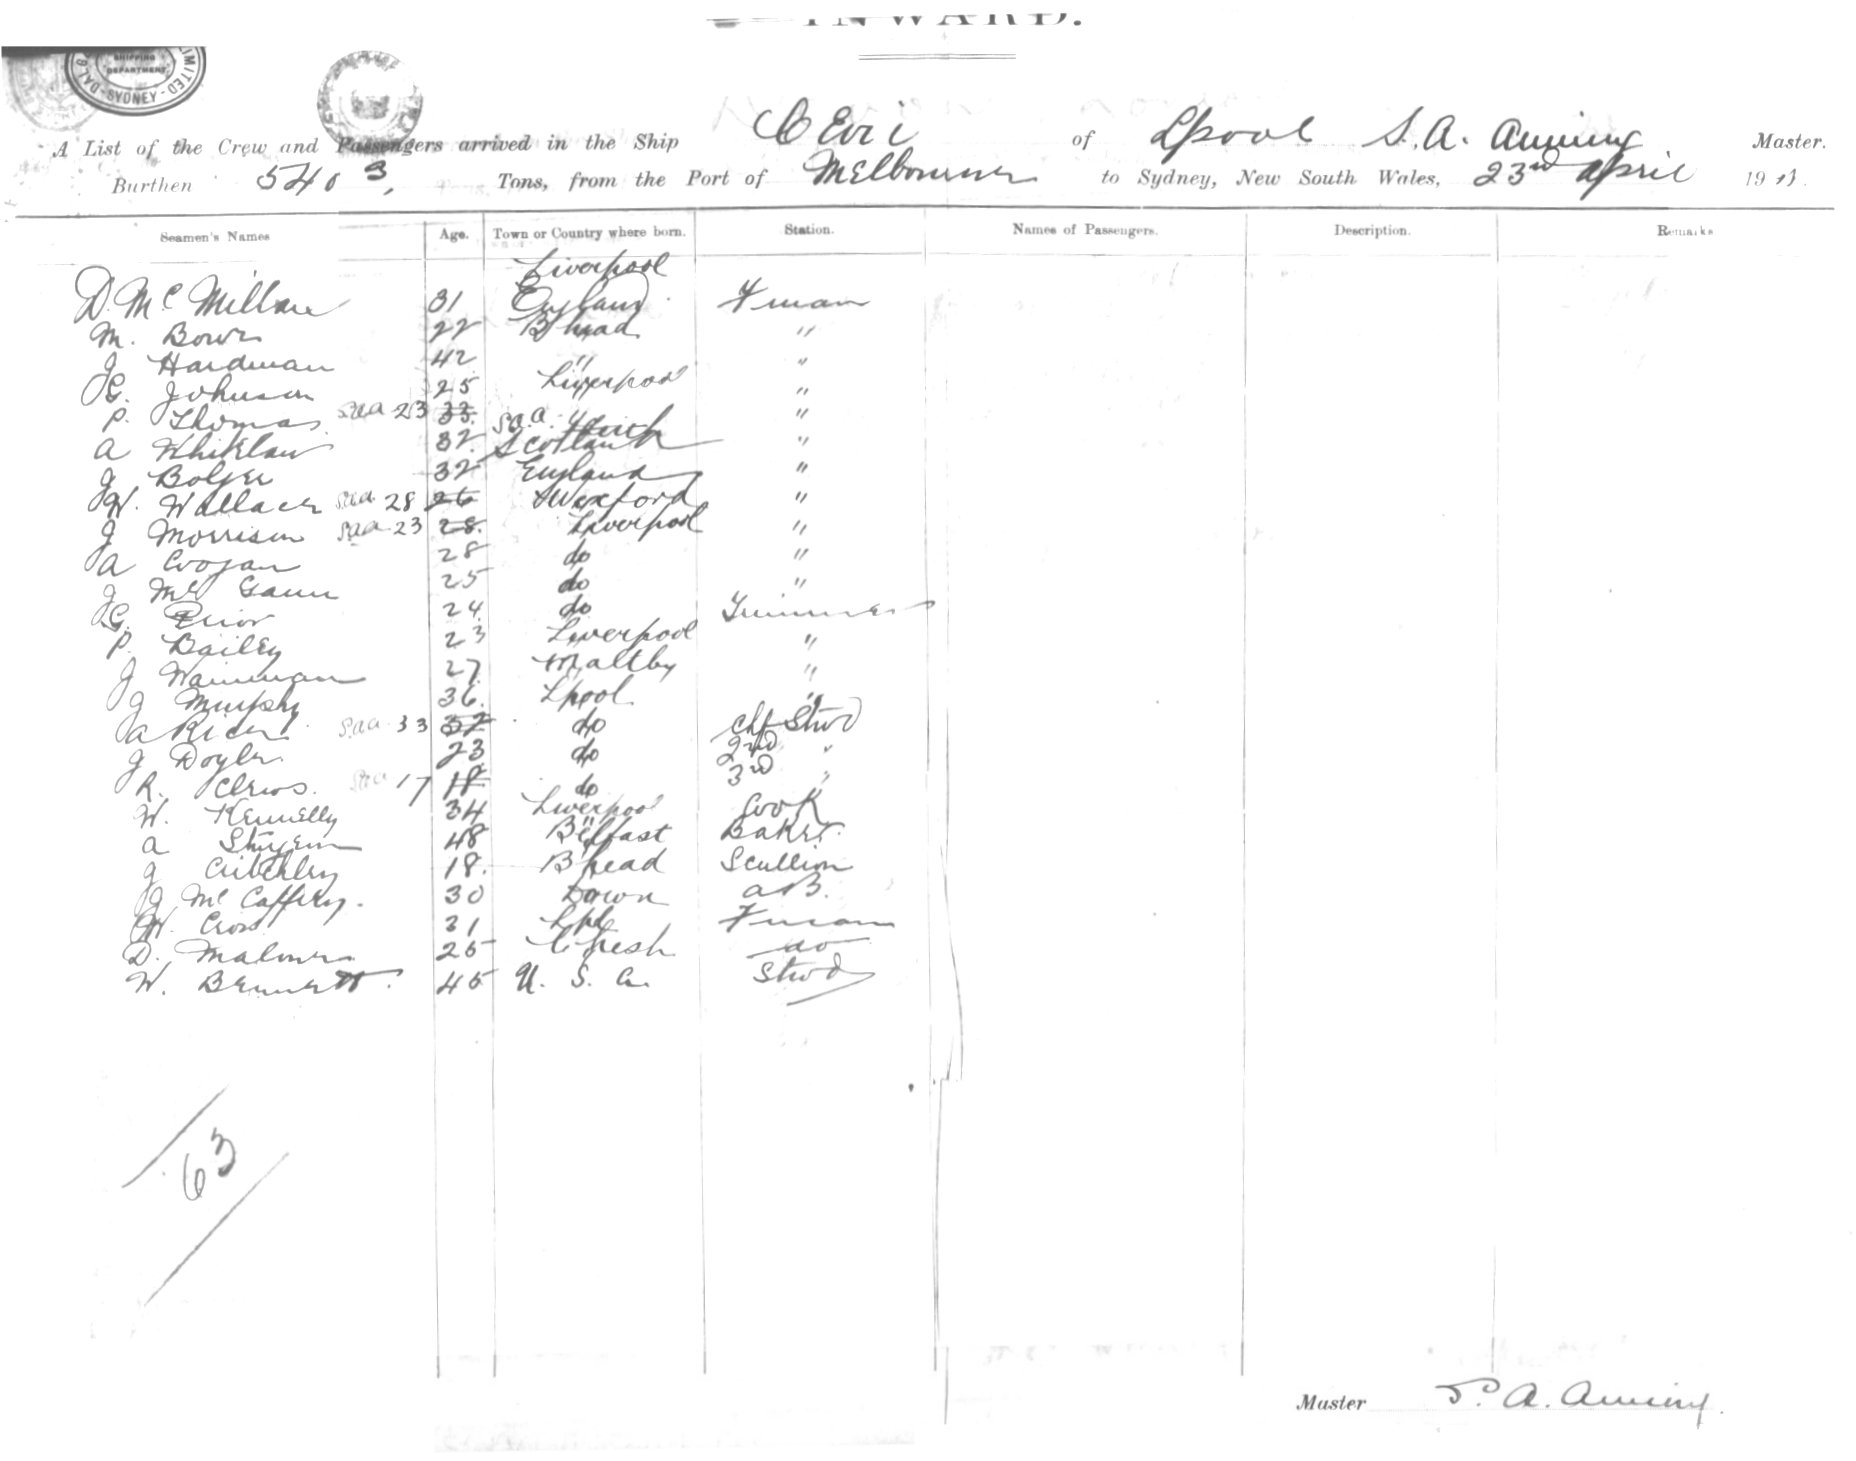 INWARD.
SHIPPING DEPARTMENT
SYDNEY
A List of the Crew and Passengers arrived in the Ship Cevic of Lpool S. A. Master.
Burthen 5403, Tons, from the Port of Melbourne to Sydney, New South Wales, 23rd April 19
Seamen's Names Age. Town or Country where born. Station. Names of Passengers. Description. Remarks
Liverpool
D. McMillan 31 England Fman
M. 22 B head "
J Hardman 42 " "
C. Johnson 25 Liverpool "
P. Thomas saa 23 33 saa "
A Whitelaw 32 Scotland "
J Bolger 32 England "
W. Wallace saa 28 26 Wexford "
J Morrison saa 23 28 Liverpool "
A Coogan 28 do "
J Mc Gann 25 do "
C. Prior 24 do Trimmer
P. Bailey 23 Liverpool "
J 27 Maltby "
J Murphy 36 Lpool "
A Rider saa 33 32 do Chf Stwd
J Doyle 23 do 2nd "
R. Clews saa 17 18 do 3rd "
W. Kennelly 34 Liverpool Cook
A 48 Belfast Baker
J Critchley 18 B head Scullion
J McCaffery. 30 Down A B.
W. Cross 31 Lpl Fman
D. Malone 25 do
W. Bennett 45 U. S. A. Stwd
63
Master S. A.